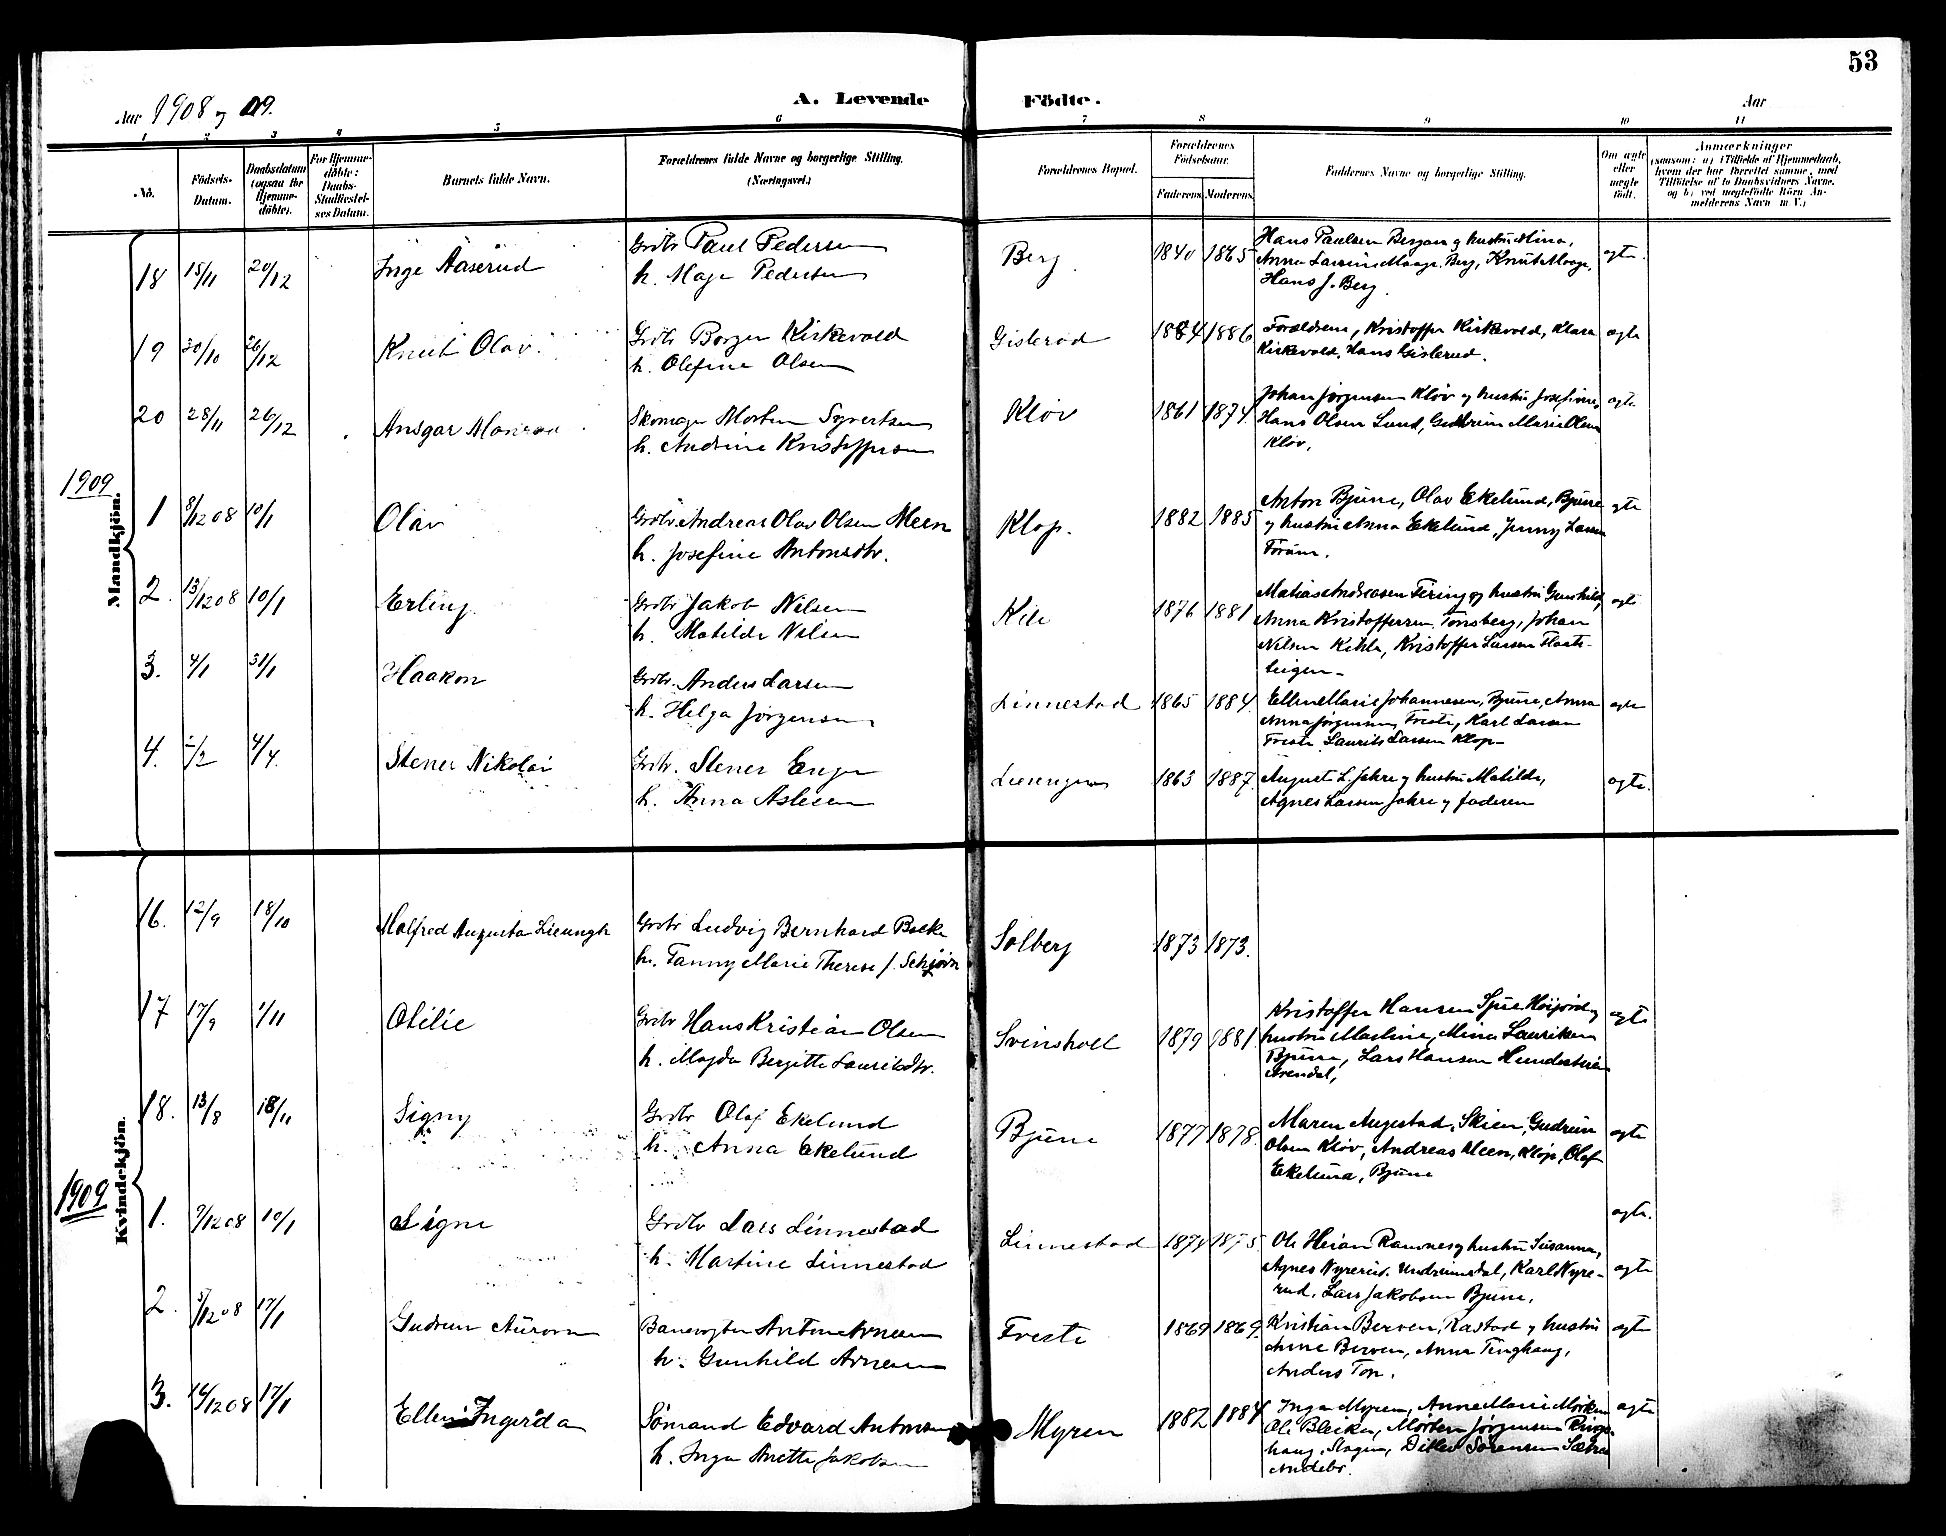 53
Aar 1908 og 09.
A. Levende Födte.
Aar
1 2 3 4 5 6 7 8 9 10 11
No.
Födsels-Datum.
Daabsdatum (ogsaa for Hjemme-döbte).
For Hjemme-döbte: Daabs-Stadfæstel-ses Datum.
Barnets fulde Navn.
Forældrenes fulde Navne og borgerlige Stilling. (Næringsvei.)
Forældrenes Bopæl.
Forældrenes Födselsaar.
Faderens Moderens
Faddernes Navne og borgerlige Stilling.
Om ægte eller uægte födt.
Anmærkninger
(saasom: a) i Tilfælde af Hjemmedaab, hvem der har forrettet samme, med Tilföielse af to Daabsvidners Navne, og b) ved uægtefödte Börn An-melderens Navn m. V.)
Mandkjön.
18 15/11 20/12 Inge Aaserud
Grdbr Paul Pedersen
h. Maje Pedersen
Berg. 1840 1865
Hans Paulsen Bergan og hustru Mina,
Anna Laurine Maage, Berg, Knut Maage,
Hans J. Berg.
ægte.
19 30/10 26/12 Knut Olav.
Grdbr Borger Kirkevold
h. Olefine Olsen
Gislerød 1884 1886
Forældrene, Kristoffer Kirkevold, Klara
Kirkevold, Hans Gislerud.
ægte
20 28/11 26/12 Ansgar
Skomager Morten Syvertsen
h. Andrine Kristoffersen
Kløv 1861 1874
Johan Jørgensen Kløv og hustru Josefine,
Hans Olsen Lund, Gudrun Marie Olsen
Kløv.
ægte
1909
1 8/12 08 10/1 Olav
Grdbr. Andreas Olav Olsen Meen
h. Josefine Antonsdtr.
Klop. 1882 1885
Anton Bjune, Olav Ekelund, Bjune
og hustru Anna Ekelund, Jenny Larsen
Forum.
ægte
2. 13/12 08 10/1 Erling.
Grdbr Jakob Nilsen
h. Matilde Nilsen
1876 1881
Matias Andreasen Fering og hustru Gunhild,
Anna Kristoffersen Tønsberg, Johan
Nilsen Kihle, Kristoffer Larsen
ægte
3. 4/1 31/1 Haakon
Grdbr. Anders Larsen
h. Helga Jørgensen
Linnestad 1865 1884.
Ellen Marie Johannesen, Bjune, Anna
Anna Jørgensen, Freste, Karl Larsen
Freste, Laurits Larsen Klop
ægte
4. /2 4/4. Stener Nikolai
Grdbr. Stener Enge
h. Anna Aslesen
1863 1887.
August L. Jahre og hustru Matilde,
Agnes Larsen Jahre og faderen
ægte.
Kvindekjön.
16. 12/9 18/10 Malfred Augusta
Grdbr Ludvig Bernhard Bakke
h. Fanny Marie Therese f. Schjørn
Solberg 1873 1873.
17 17/9 1/11 Otilie
Grdbr Hans Kristian Olsen
h. Magda Bergitte Lauritsdtr.
Svinsholt 1879 1881.
Kristoffer Hansen Høijord og
hustru Martine, Mina Lauriksen
Bjune, Lars Hansen
Arendal,
ægte
18. 13/8 18/11 Signy
Grdbr Olaf Ekelund
h. Anna Ekelund
Bjune 1877 1878.
Maren Augestad, Skien, Gudrun
Olsen Kløv, Andreas Meen, Klop, Olaf
Ekelund, Bjune
ægte
1909
1. 9/12 08 10/1 Signe
Grdbr Lars Linnestad
h. Martine Linnestad
Linnestad 1874 1875.
Ole Heian Ramnes og hustru Susanne,
Agnes Nyrerud, Undrumsdal, Karl Nyre-
rud, Lars Jakobsen Bjune,
ægte.
ægte
2. 5/12 08 17/1 Gudrun Aurora
Banevogter Anton Arnesen
h. Gunhild Arnesen
Freste 1869 1869.
Kristian Berven, Rastad og hustru
Anne Berven, Anna Tinghaug,
Anders Ton.
ægte
3. 14/12 08 17/1 Ellen Ingerda
Sømand Edvard Antonsen
h. Inga Anette Jakobsen
Myren 1882 1884.
Inga Myren, Anne Marie Mørken
Ole Bleiken, Morten Jørgensen Ring-
haug, Slagen, Ditlev Sørensen Sætra
Andebo.
ægte